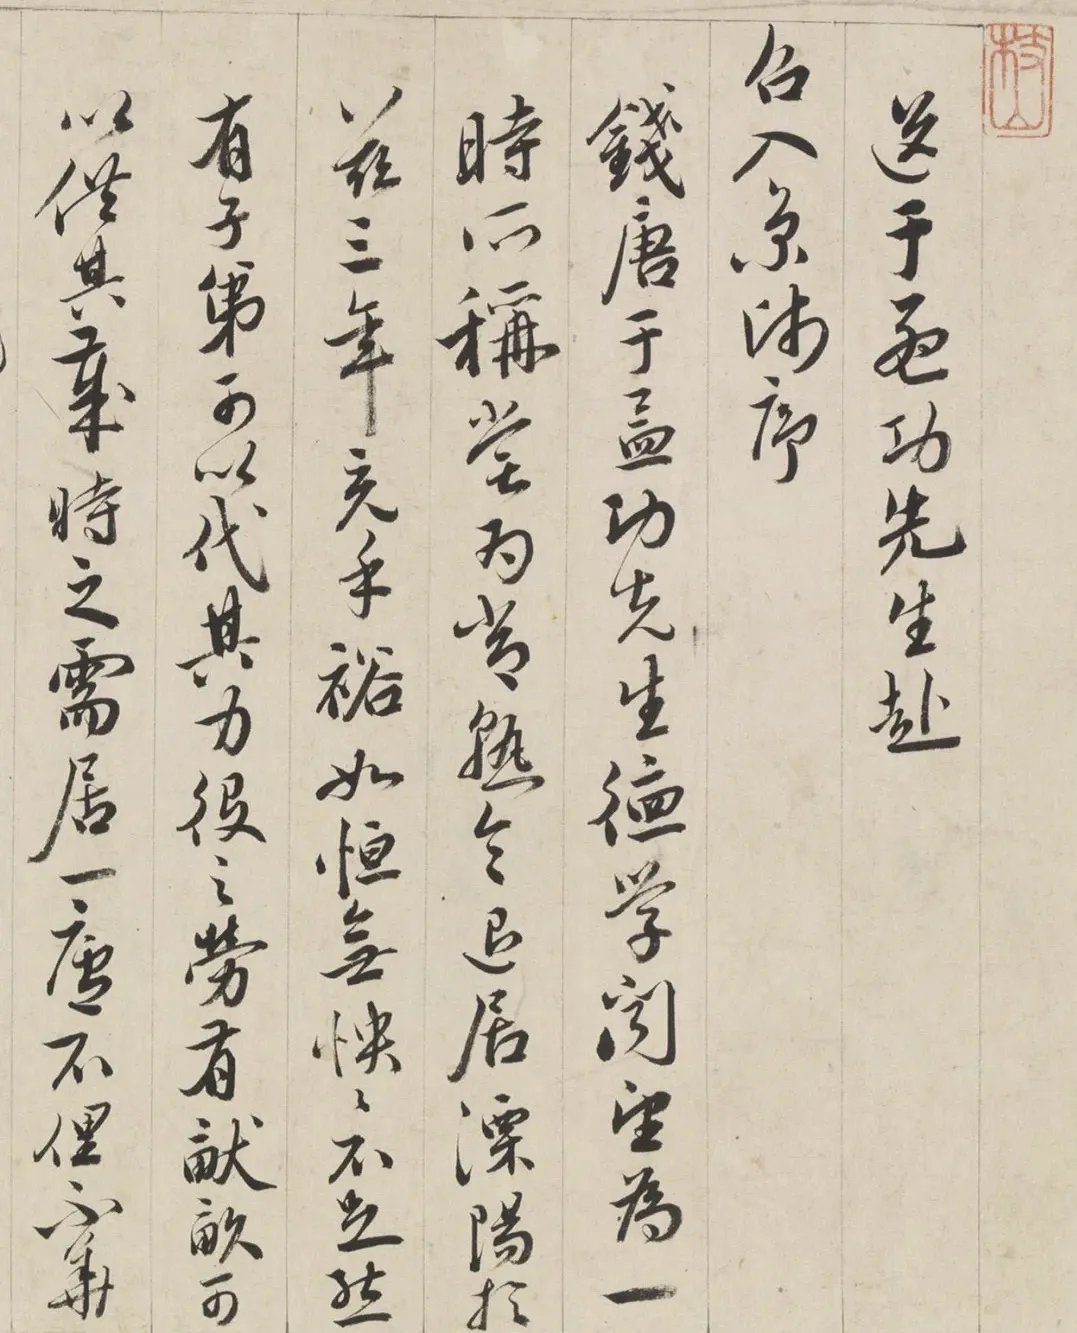 枝山
送于孟功先生赴
召入京師序
錢唐于孟功先生德学闻望為一
時所稱嘗为常熟令退居溧陽於
兹三年充乎裕如恒無怏〻不足然
有子弟可以代其力役之勞有畎畝可
以供其歲時之需居一廛不俚不華